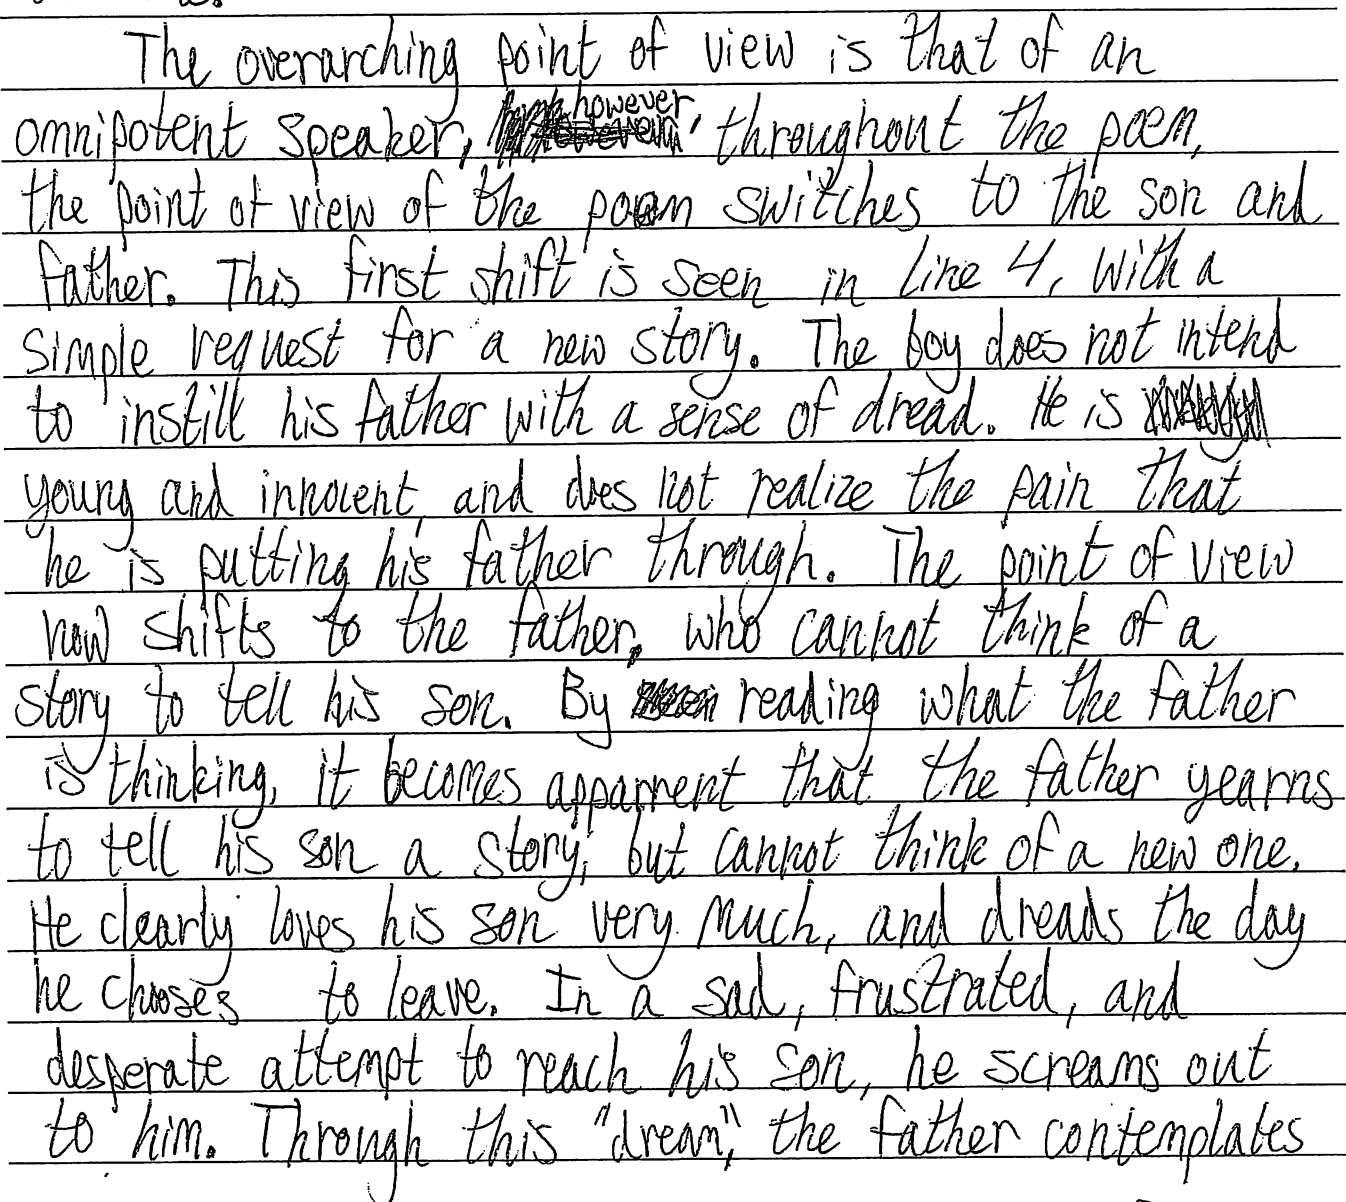 The overarching point of view is that of an
omnipotent speaker, however, throughout the poem,
the point of view of the poem switches to the son and
father. This first shift is seen in line 4, with a
simple request for a new story. The boy does not intend
to instill his father with a sense of dread. He is
young and innocent, and does not realize the pain that
he is putting his father through. The point of view
now shifts to the father, who cannot think of a
story to tell his son. By reading what the father
is thinking, it becomes apparrent that the father yearns
to tell his son a story, but cannot think of a new one.
He clearly loves his son very much, and dreads the day
he chooses to leave. In a sad, frustrated, and
desperate attempt to reach his son, he screams out
to him. Through this "dream", the father contemplates